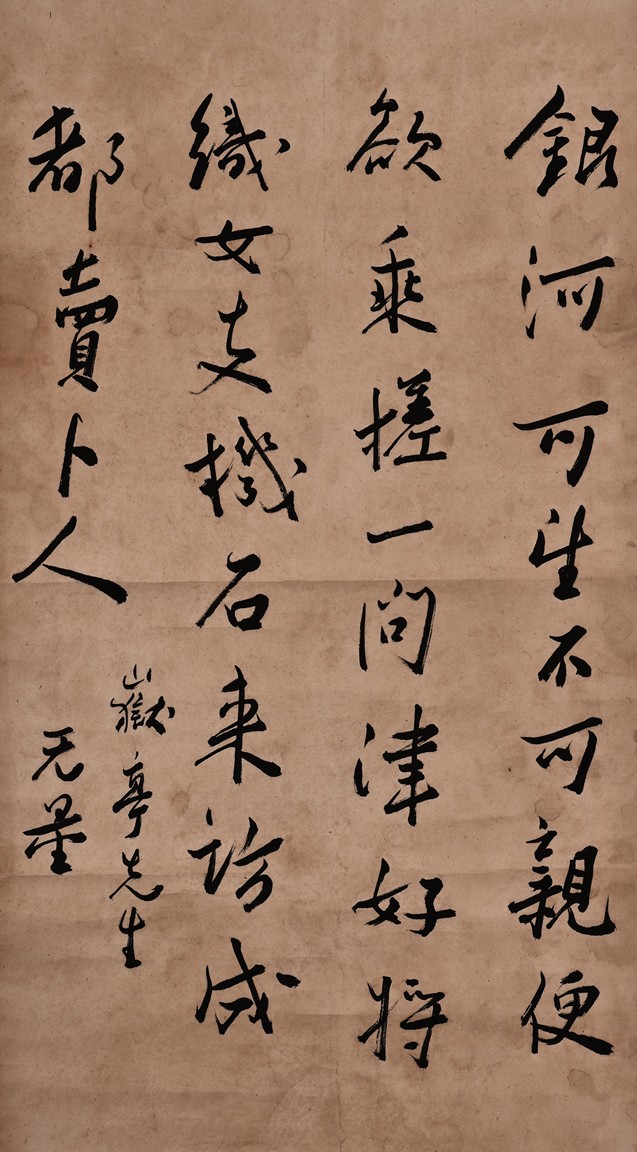 銀河可望不可親便
欲乘槎一問津好將
織女支機石來訪成
都賣卜人
嶽亭先生
无量